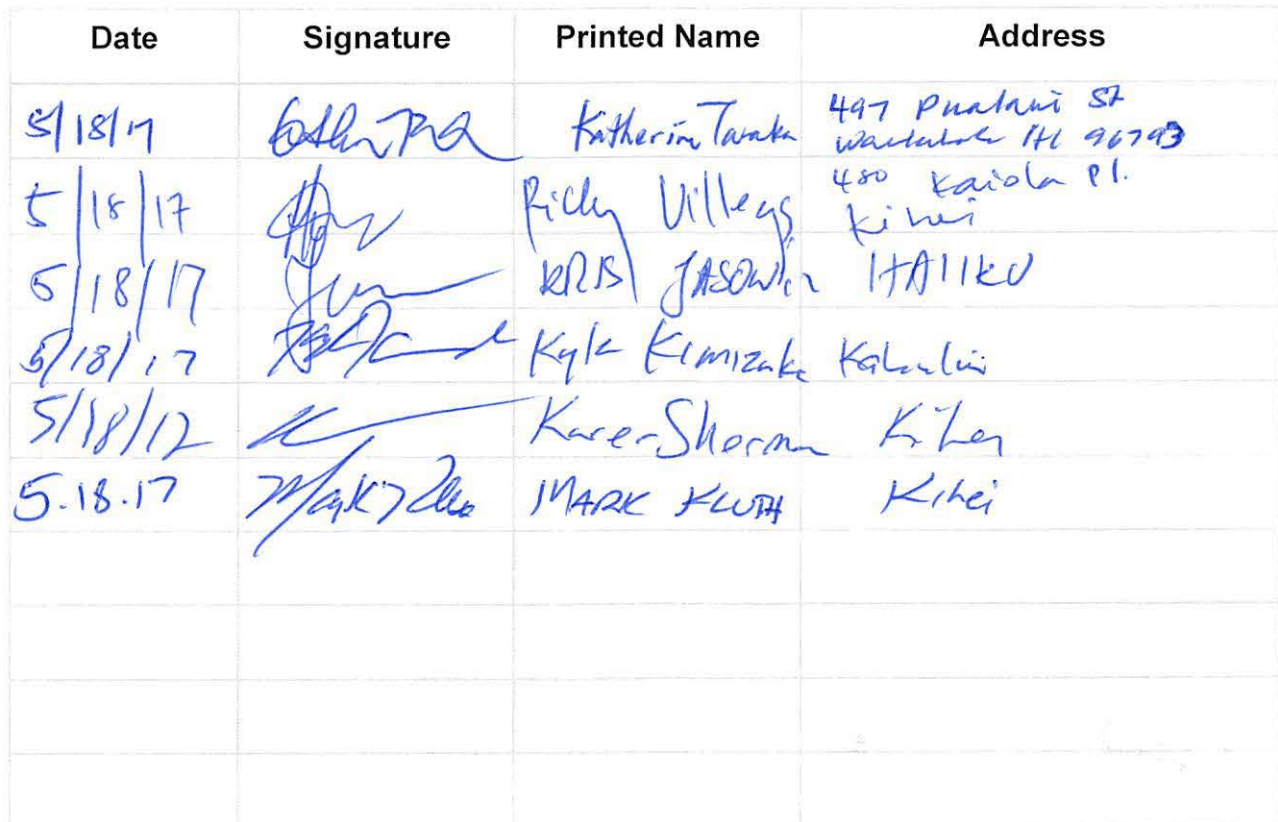 Date Signature Printed Name Address
5/18/17 Katherine Tanaka 497 Pualani St
HI 96793
5/18/17 Ricky Villegas 480 Kaiola Pl.
Kihei
5/18/17 KRIS HAIKU
5/18/17 Kyle Kahului
5/18/17 Karen Sherman Kihei
5.18.17 MARK KLUTH Kihei